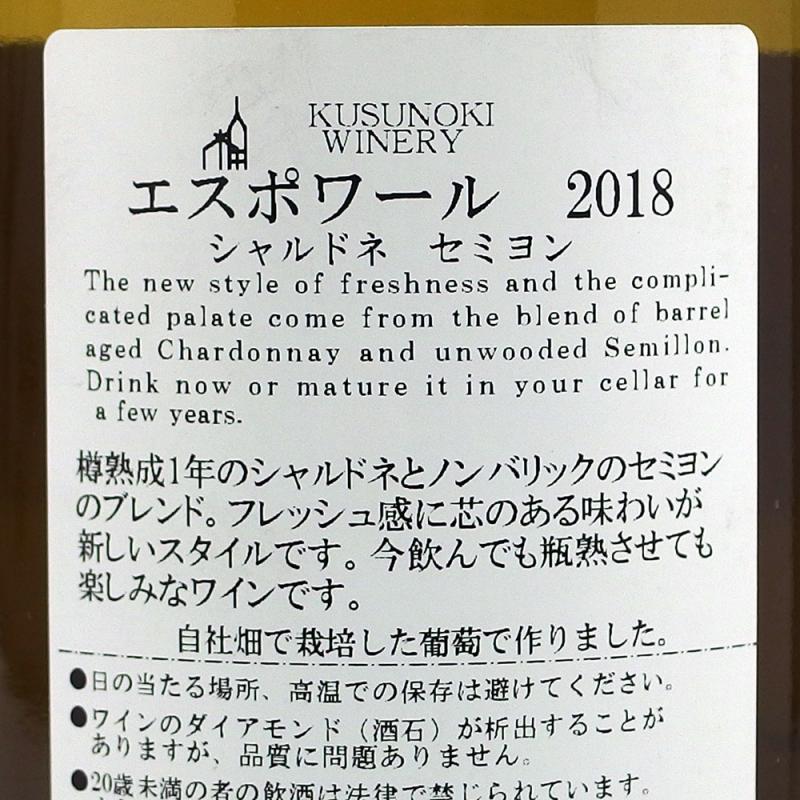 KUSUNOKI
WINERY
エスポワール 2018
シャルドネ セミヨン
The new style of freshness and the compli-
cated palate come from the blend of barrel
aged Chardonnay and unwooded Semillon.
Drink now or mature it in your cellar for
a few years.
樽熟成1年のシャルドネとノンバリックのセミヨン
のブレンド。フレッシュ感に芯のある味わいが
新しいスタイルです。今飲んでも瓶熟させても
楽しみなワインです。
自社畑で栽培した葡萄で作りました。
●日の当たる場所、高温での保存は避けてください。
●ワインのダイアモンド（酒石）が析出することが
ありますが、品質に問題ありません。
●20歳未満の者の飲酒は法律で禁じられています。